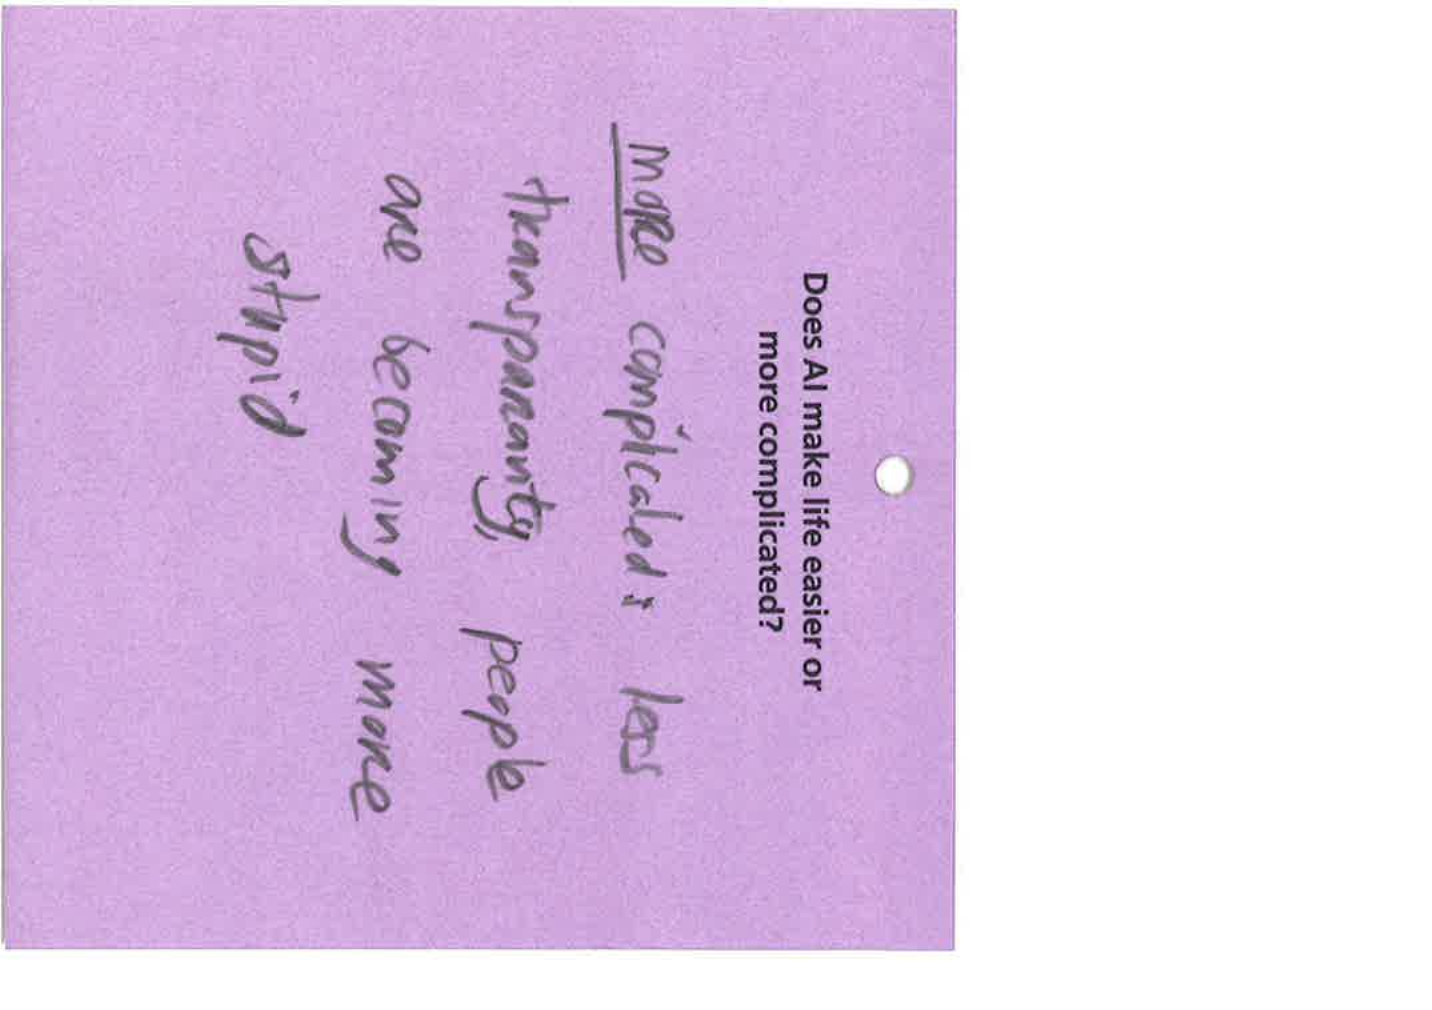 Does AI make life easier or
more complicated?
more complicated: less
transparanty, people
are becoming more
stupid